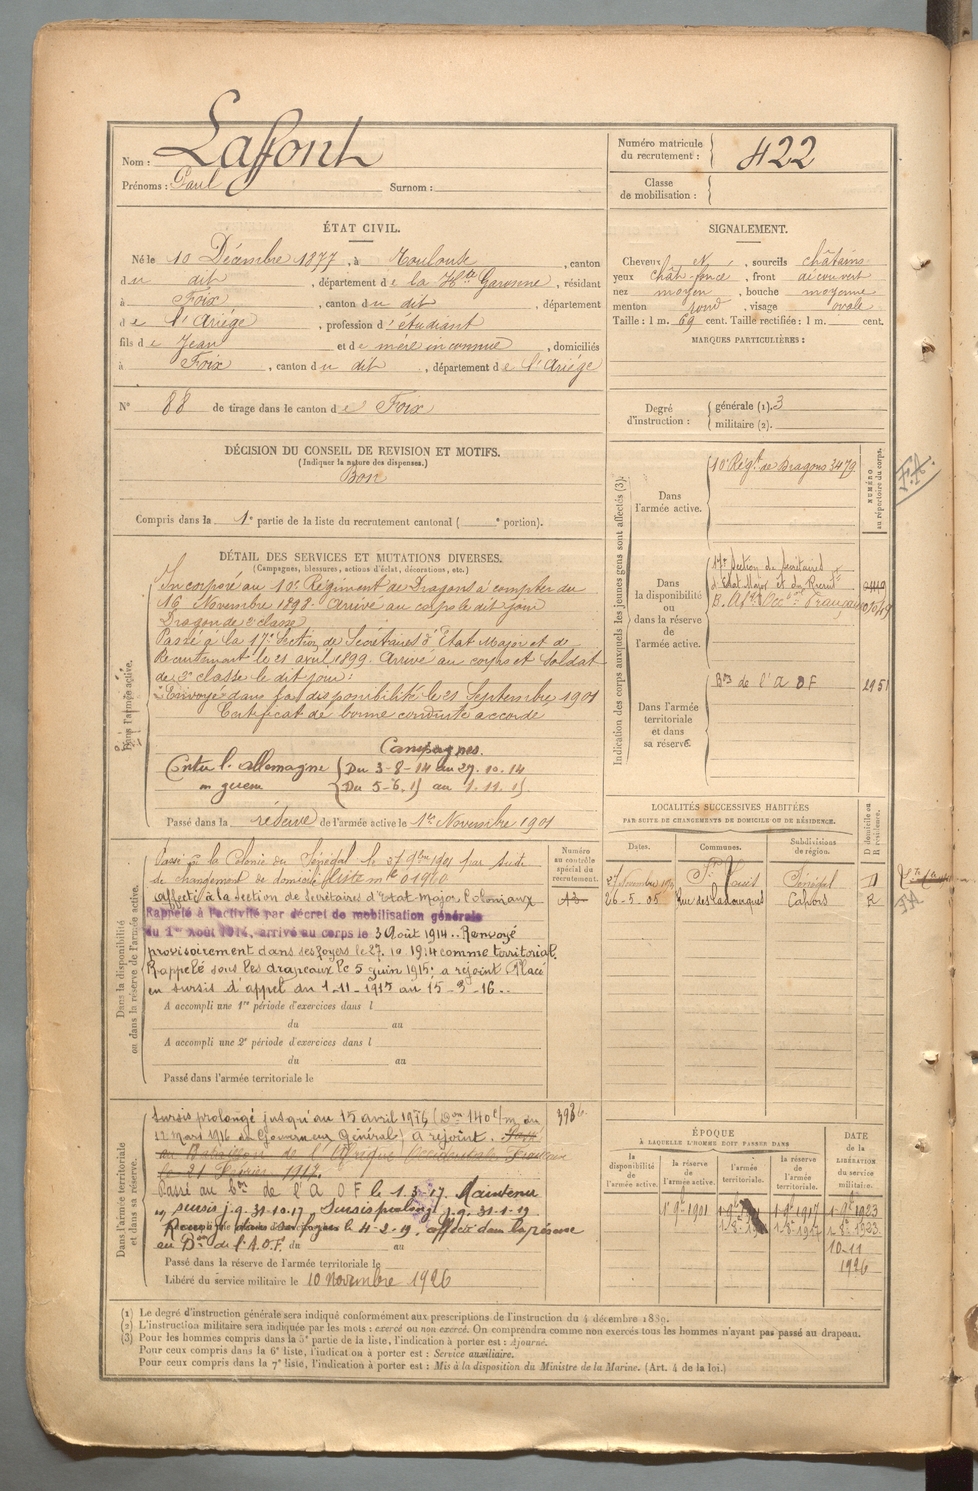 Nom : Laffont
Prénoms : Paul Surnom :
Numéro matricule du recrutement : 422
Classe de mobilisation :
ÉTAT CIVIL.
Né le 10 Décembre 1877, à Toulouse, canton
du dit, département de la Hte Garonne, résidant
à Foix, canton du dit, département
de l'Ariége, profession d'étudiant
fils de Jean et de mère inconnue, domiciliés
à Foix, canton du dit, département de l'Ariége
N° 88 de tirage dans le canton de Foix
SIGNALEMENT.
Cheveux et, sourcils châtains
yeux chât-foncé, front découvert
nez moyen, bouche moyenne
menton rond, visage ovale
Taille : 1 m. 69 cent. Taille rectifiée : 1 m. cent.
MARQUES PARTICULIÈRES :
Degré d'instruction : générale (1). 3
militaire (2).
DÉCISION DU CONSEIL DE REVISION ET MOTIFS.
(Indiquer la nature des dispenses.)
Bon
Compris dans la 1e partie de la liste du recrutement cantonal ( e portion).
DÉTAIL DES SERVICES ET MUTATIONS DIVERSES.
(Campagnes, blessures, actions d'éclat, décorations, etc.)
Dans l'armée active.
Incorporé au 10e Régiment de Dragons à compter du
16 Novembre 1898. Arrivé au corps le dit jour
Dragon de 2e classe
Passé à la 17e Section de Secrétaires d'Etat Major et de
Recrutement le 21 avril 1899. Arrivé au corps et Soldat
de 2e classe le dit jour.
Envoyé dans la disponibilité le 21 Septembre 1901
Certificat de bonne conduite accordé
Campagnes.
Contre l'allemagne Du 3-8-14 au 27.10.14
Du 5-6.15 au 1.11.15
Passé dans la réserve de l'armée active le 1er Novembre 1901
Indication des corps auxquels les jeunes gens sont affectés (3).
NUMÉRO au répertoire du corps.
Dans l'armée active.
10e Régt de Dragons 3479
Dans la disponibilité ou dans la réserve de l'armée active.
17e Section de Secrétaires
d'Etat Major et du Recrut
Dans l'armée territoriale et dans sa réserve.
Bon de l'A O F 2951
LOCALITÉS SUCCESSIVES HABITÉES
PAR SUITE DE CHANGEMENTS DE DOMICILE OU DE RÉSIDENCE.
Dates. Communes. Subdivisions de région. D domicile ou R résidence.
St Louis Sénégal D
26-5-05 Cahors R
Dans la disponibilité ou dans la réserve de l'armée active.
Numéro au contrôle spécial du recrutement.
Passé à la Colonie du Sénégal le 27 9bre 1901 par suite
de changement de domicile
affecté à la Section de Secrétaires d'Etat-Major Coloniaux
Rappelé à l'activité par décret de mobilisation générale
du 1er Août 1914, arrivé au corps le 3 Août 1914. Renvoyé
provisoirement dans ses foyers le 27.10.1914 comme territorial.
Rappelé sous les drapeaux le 5 juin 1915; a rejoint. Placé
en sursis d'appel du 1-11-1915 au 15-3-16..
A accompli une 1re période d'exercices dans l
du au
A accompli une 2e période d'exercices dans l
du au
Passé dans l'armée territoriale le
Dans l'armée territoriale et dans sa réserve.
Sursis prolongé jusqu'au 15 avril 1916 (Don 140 c/m du
12 Mars 1916 du Gouverneur Général) a rejoint.
au Bataillon de l'Afrique Occidentale Française
le 21 Février 1917.
Passé au Bon de l'A O F le 1.3.17. Maintenu
en sursis j.q. 31-10-17 Sursis prolongé j.q. 31-1-19
dans ses foyers le 4-2-19, affecté dans la réserve
au Bon de l'A.O.F. du au
Passé dans la réserve de l'armée territoriale le
Libéré du service militaire le 10 novembre 1926
ÉPOQUE
À LAQUELLE L'HOMME DOIT PASSER DANS
la disponibilité de l'armée active. la réserve de l'armée active. l'armée territoriale. la réserve de l'armée territoriale.
DATE de la LIBÉRATION du service militaire.
10-11
1926
(1) Le degré d'instruction générale sera indiqué conformément aux prescriptions de l'instruction du 4 décembre 1889.
(2) L'instruction militaire sera indiquée par les mots : exercé ou non exercé. On comprendra comme non exercés tous les hommes n'ayant pas passé au drapeau.
(3) Pour les hommes compris dans la 5e partie de la liste, l'indication à porter est : Ajourné.
Pour ceux compris dans la 6e liste, l'indication à porter est : Service auxiliaire.
Pour ceux compris dans la 7e liste, l'indication à porter est : Mis à la disposition du Ministre de la Marine. (Art. 4 de la loi.)